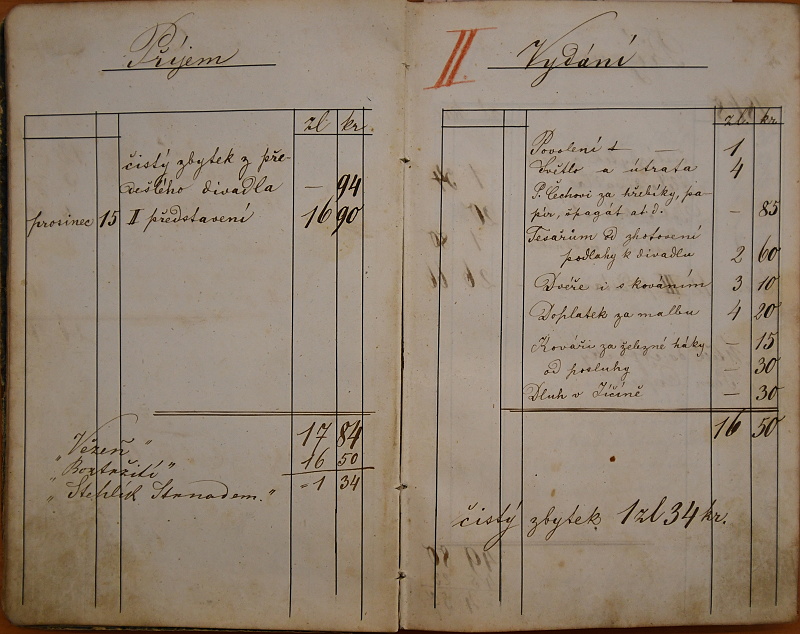 Příjem
zl. kr.
čistý zbytek z pře-
dešlého divadla — 94
prosinec 15 II představení 16 90
17 84
16 50
1 34
"Vězeň"
"Roztržití"
"Stehlík Strnadem."
II.
Vydání
zl. kr.
Povolení — 1
Světlo a útrata 4
P. Čechovi za hřebíky, pa-
pír, špagát at.d. — 85
Tesařům od zhotovení
podlahy k divadlu 2 60
Dvéře i s kováním 3 10
Doplatek za malbu 4 20
Kováři za železné háky — 15
od posluhy — 30
Dluh v Jičíně — 30
16 50
čistý zbytek 1 zl 34 kr.